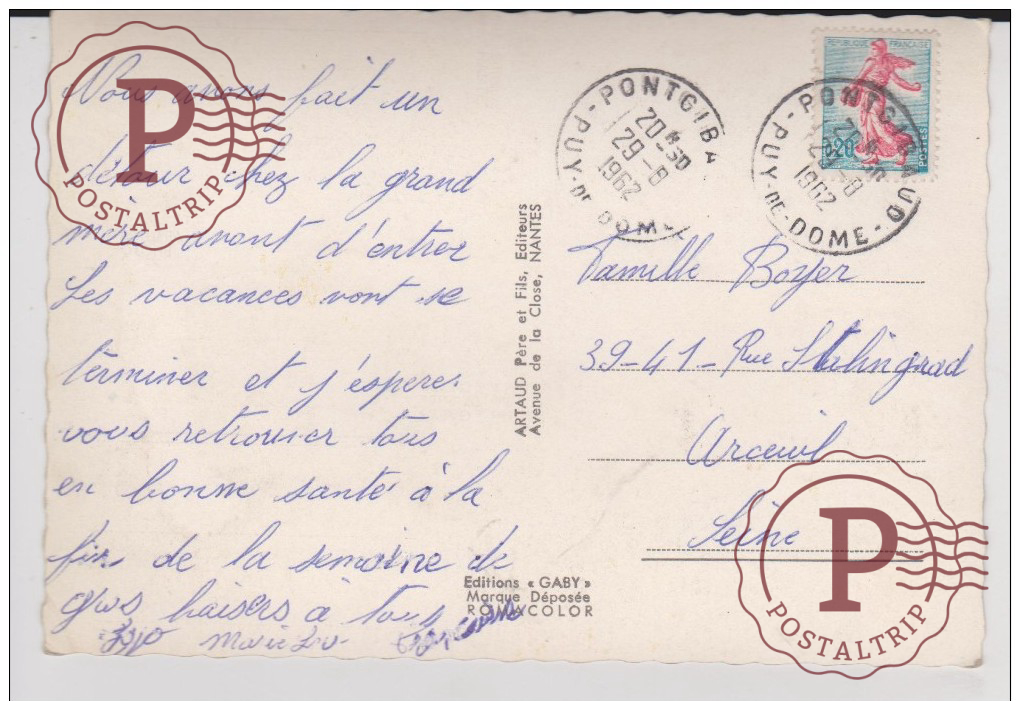 Nous avons fait un
détour chez la grand
mère avant d'entrer
Les vacances vont se
terminer et j'espere
vous retrouver tous
en bonne santé à la
fin de la semaine de
gros baisers a tous
Marie Lou
P
POSTALTRIP
ARTAUD Père et Fils, Editeurs
Avenue de la Close, NANTES
Editions « GABY »
Marque Déposée
ROMACOLOR
PONTGIBA
PUY-DE-DOME
20 H 30
29-8
1962
REPUBLIQUE FRANÇAISE
0,20
POSTES
PONTGIBAUD
PUY-DE-DOME
1962
Famille Boyer
39-41- Rue Stalingrad
Arceuil
Seine
P
POSTALTRIP